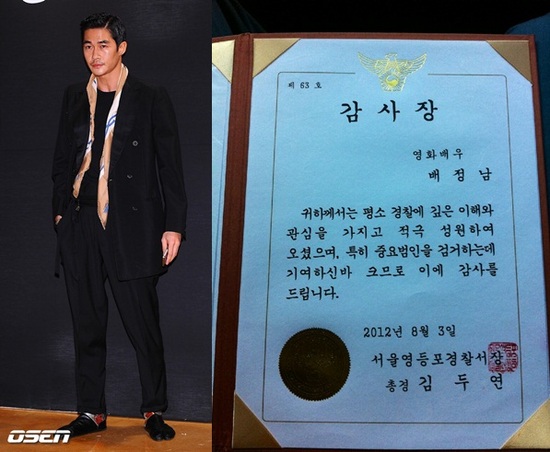 제 63 호
감사장
영화배우
배정남
귀하께서는 평소 경찰에 깊은 이해와
관심을 가지고 적극 성원하여
오셨으며, 특히 중요범인을 검거하는데
기여하신바 크므로 이에 감사를
드립니다.
2012년 8월 3일
서울영등포경찰서장
총경 김두연
OSEN